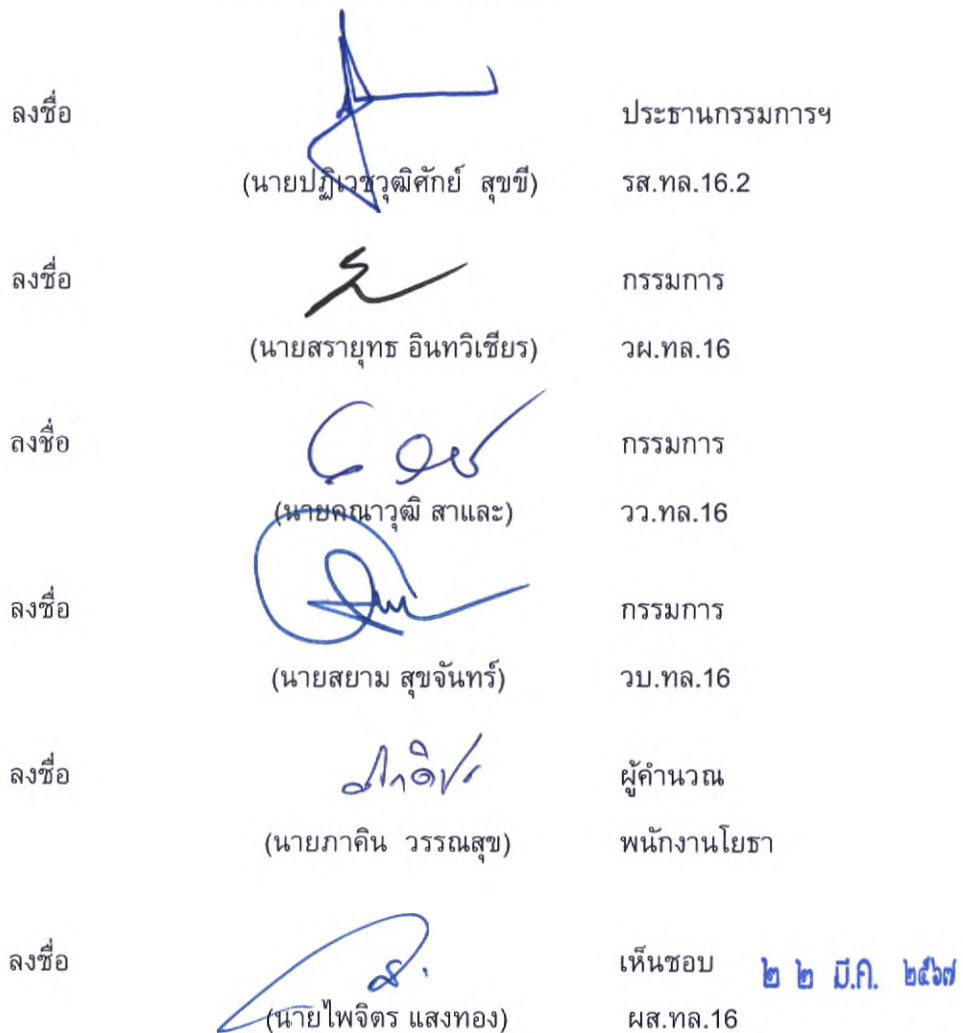 ลงชื่อ ประธานกรรมการฯ
(นายปฏิเวชวุฒิศักย์ สุขขี) รส.ทล.16.2
ลงชื่อ กรรมการ
(นายสรายุทธ อินทวิเชียร) วผ.ทล.16
ลงชื่อ กรรมการ
(นายคณาวุฒิ สาและ) วว.ทล.16
ลงชื่อ กรรมการ
(นายสยาม สุขจันทร์) วบ.ทล.16
ลงชื่อ ผู้คำนวณ
(นายภาคิน วรรณสุข) พนักงานโยธา
ลงชื่อ เห็นชอบ ๒ ๒ มี.ค. ๒๕๖๗
(นายไพจิตร แสงทอง) ผส.ทล.16